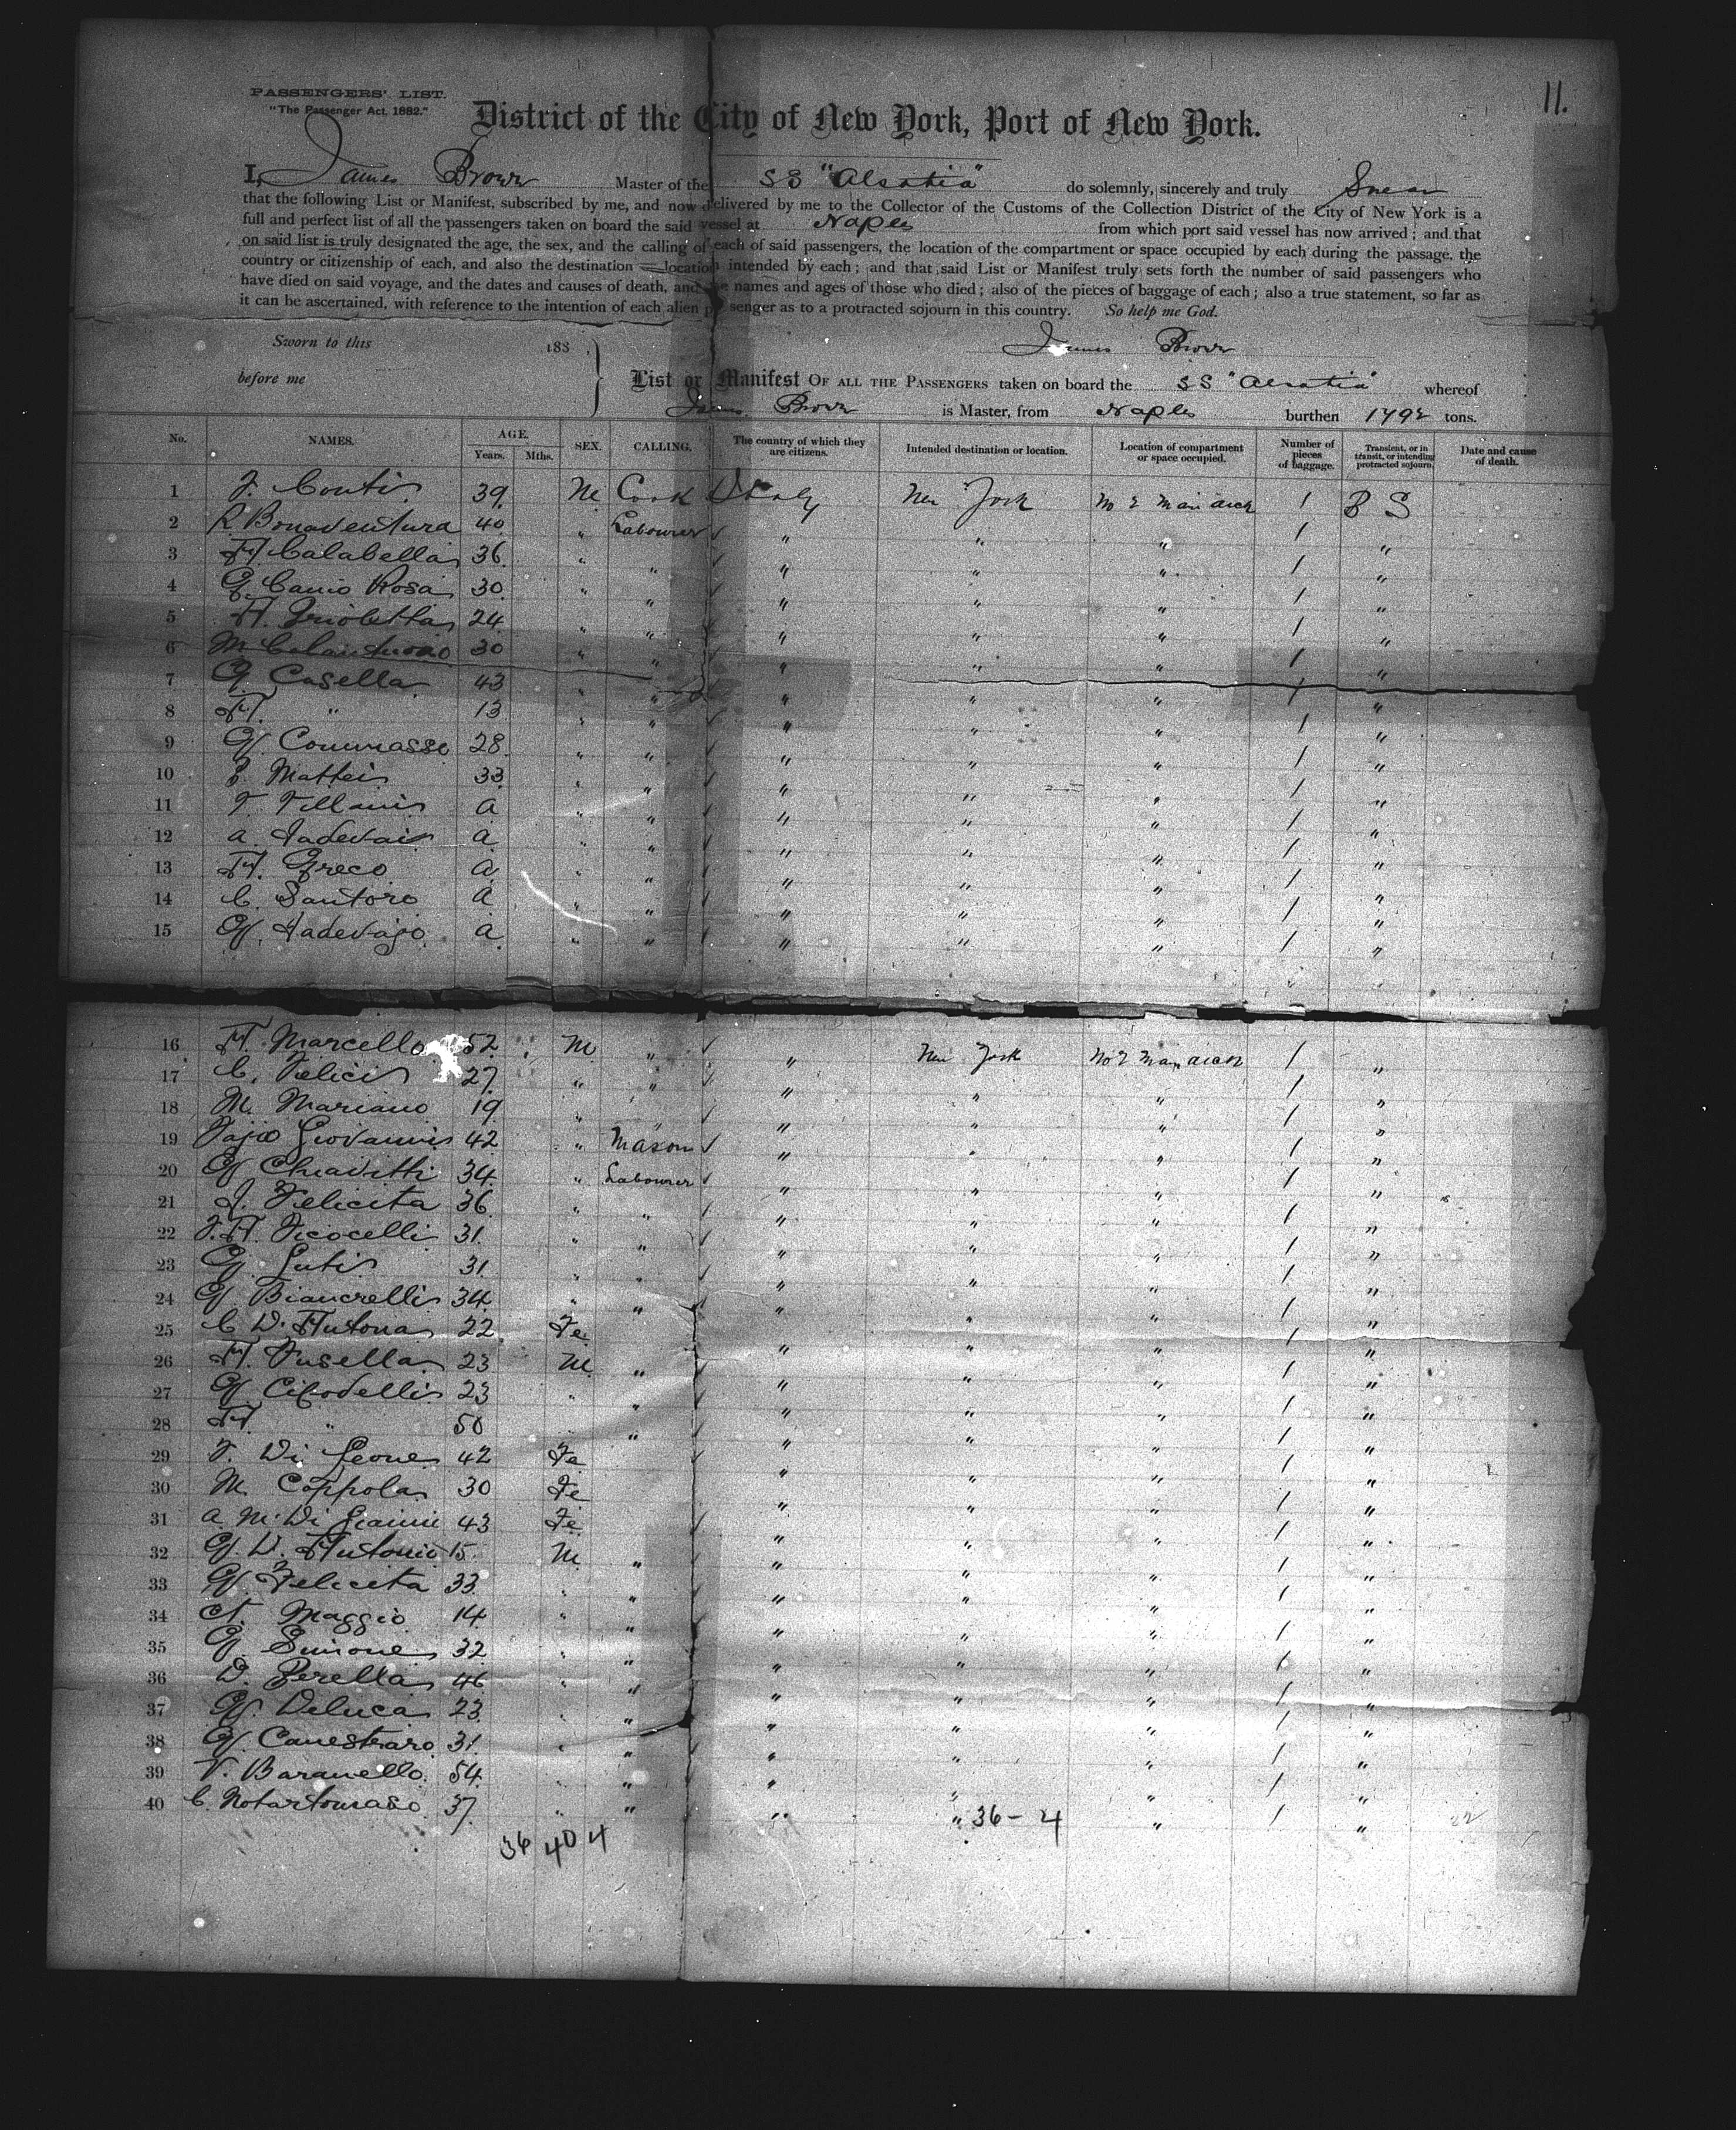 11.
PASSENGERS' LIST.
"The Passenger Act, 1882."
District of the City of New York, Port of New York.
I, James Brown Master of the SS "Alsatia" do solemnly, sincerely and truly Swear
that the following List or Manifest, subscribed by me, and now delivered by me to the Collector of the Customs of the Collection District of the City of New York is a
full and perfect list of all the passengers taken on board the said vessel at Naples from which port said vessel has now arrived; and that
on said list is truly designated the age, the sex, and the calling of each of said passengers, the location of the compartment or space occupied by each during the passage, the
country or citizenship of each, and also the destination location intended by each; and that said List or Manifest truly sets forth the number of said passengers who
have died on said voyage, and the dates and causes of death, and the names and ages of those who died; also of the pieces of baggage of each; also a true statement, so far as
it can be ascertained, with reference to the intention of each alien passenger as to a protracted sojourn in this country. So help me God.
Sworn to this 188 .
James Brown
before me
List or Manifest OF ALL THE PASSENGERS taken on board the SS "Alsatia" whereof
James Brown is Master, from Naples burthen 1792 tons.
No. NAMES. AGE. Years. Mths. SEX. CALLING. The country of which they are citizens. Intended destination or location. Location of compartment or space occupied. Number of pieces of baggage. Transient, or in transit, or intending protracted sojourn. Date and cause of death.
1 F. Conti 39 M Cook Italy New York No 2 Main deck 1 B S
2 R Bonaventura 40 " Labourer " " " 1 "
3 A. Calabella 36 " " " " " 1 "
4 G. Canio Rosa 30 " " " " " 1 "
5 A. Grioletta 24 " " " " " 1 "
6 M 30 " " " " " 1 "
7 G Casella 43 " " " " " 1 "
8 A. " 13 " " " " " 1 "
9 G. Commasso 28 " " " " " 1 "
10 Mattei 33 " " " " " 1 "
11 a " " " " " 1 "
12 a. a " " " " " 1 "
13 A. Greco a " " " " " 1 "
14 C. Santoro a " " " " " 1 "
15 G. Tadevajo a " " " " " 1 "
16 A. Marcello 52 M " " New York No 2 Main deck 1 "
17 C. Felici 27 " " " " " 1 "
18 M. Mariano 19 " " " " " 1 "
19 Giovanni 42 " Mason " " " 1 "
20 G Chiavitti 34 " Labourer " " " 1 "
21 Felicita 36 " " " " " 1 "
22 F. A. Ficocelli 31 " " " " " 1 "
23 G. 31 " " " " " 1 "
24 G. Biancrelli 34 " " " " " 1 "
25 C D. Antona 22 Fe " " " 1 "
26 A. Fusella 23 M " " " " 1 "
27 G. 23 " " " " " 1 "
28 A. " 50 " " " " " 1 "
29 F. Di Leone 42 Fe " " " 1 "
30 M. Coppola 30 Fe " " " 1 "
31 A M. Di 43 Fe " " " 1 "
32 G. D. Antonio 15 M " " " " 1 "
33 G. Felicita 33 " " " " " 1 "
34 A. Maggio 14 " " " " " 1 "
35 G. Simone 32 " " " " " 1 "
36 D. Perella 46 " " " " " 1 "
37 G. Deluca 23 " " " " " 1 "
38 G. Canestraro 31 " " " " " 1 "
39 V. Baranello 54 " " " " " 1 "
40 C. Notartomaso 37 " " " " " 1 "
36 40 4 36-4